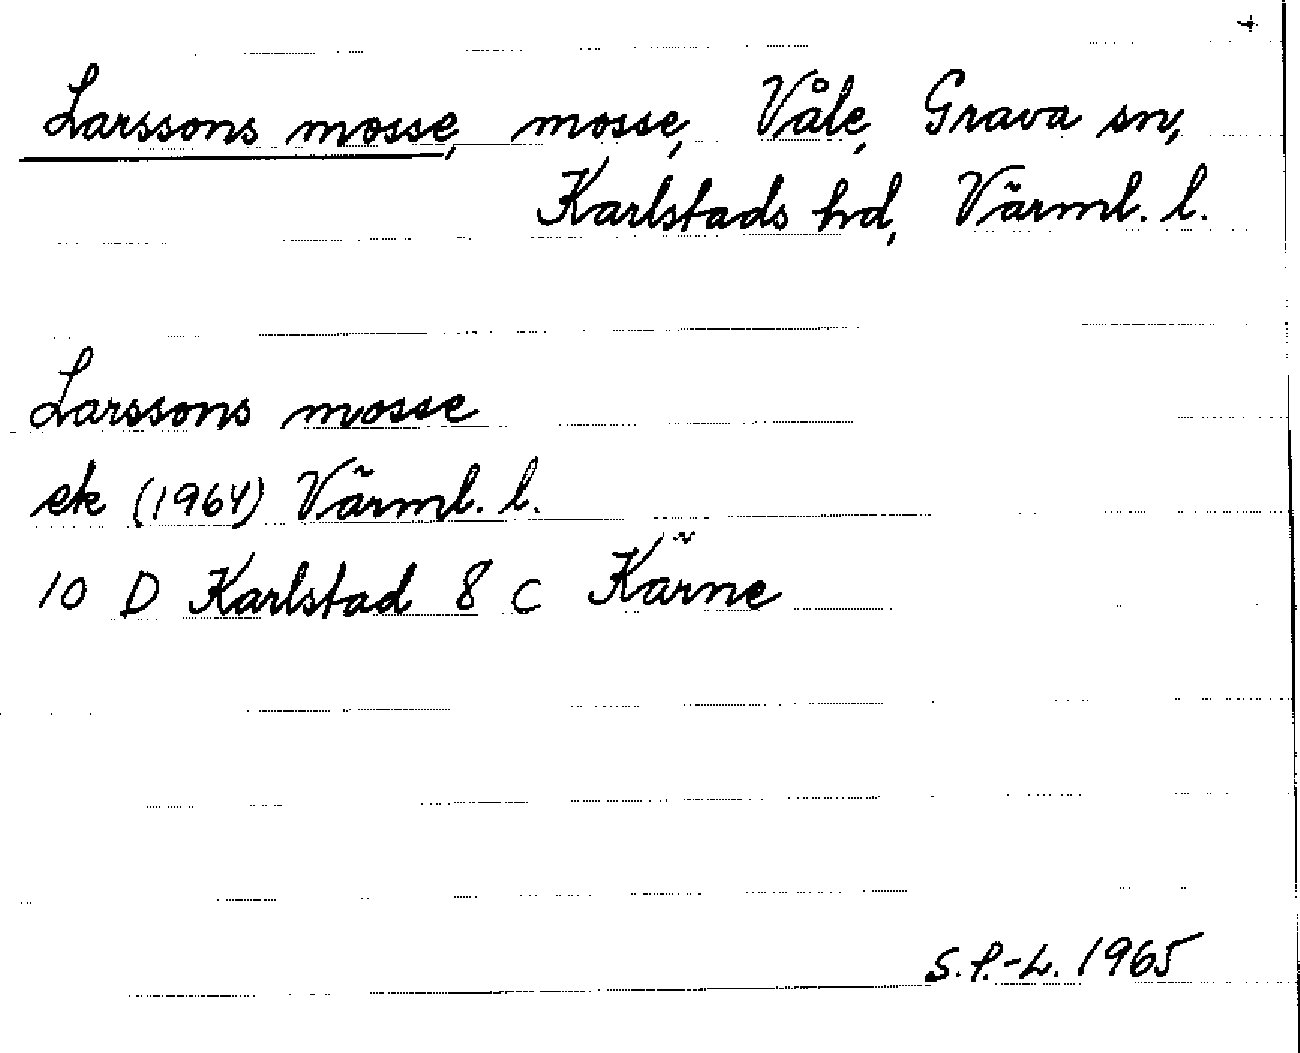 +
Larssons mosse, mosse, Våle, Grava sn,
Karlstads hd, Värml. l.
Larssons mosse
ek (1964) Värml. l.
10 D Karlstad 8 c Kärne
S.P.-L. 1965